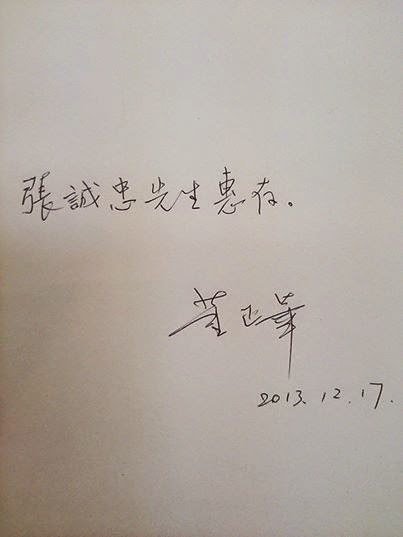 張誠忠先生惠存。
董正華
2013.12.17.